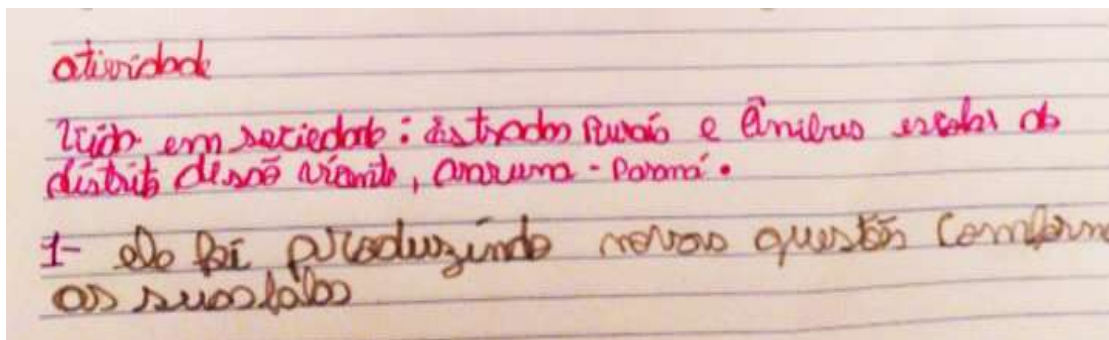 atividade
vida em sociedade: istrados Rurais e Ônibus escolar do
distrito de são vicente, araruna - Paraná.
1- ela foi produzindo novas questões Conforme
as suas falas